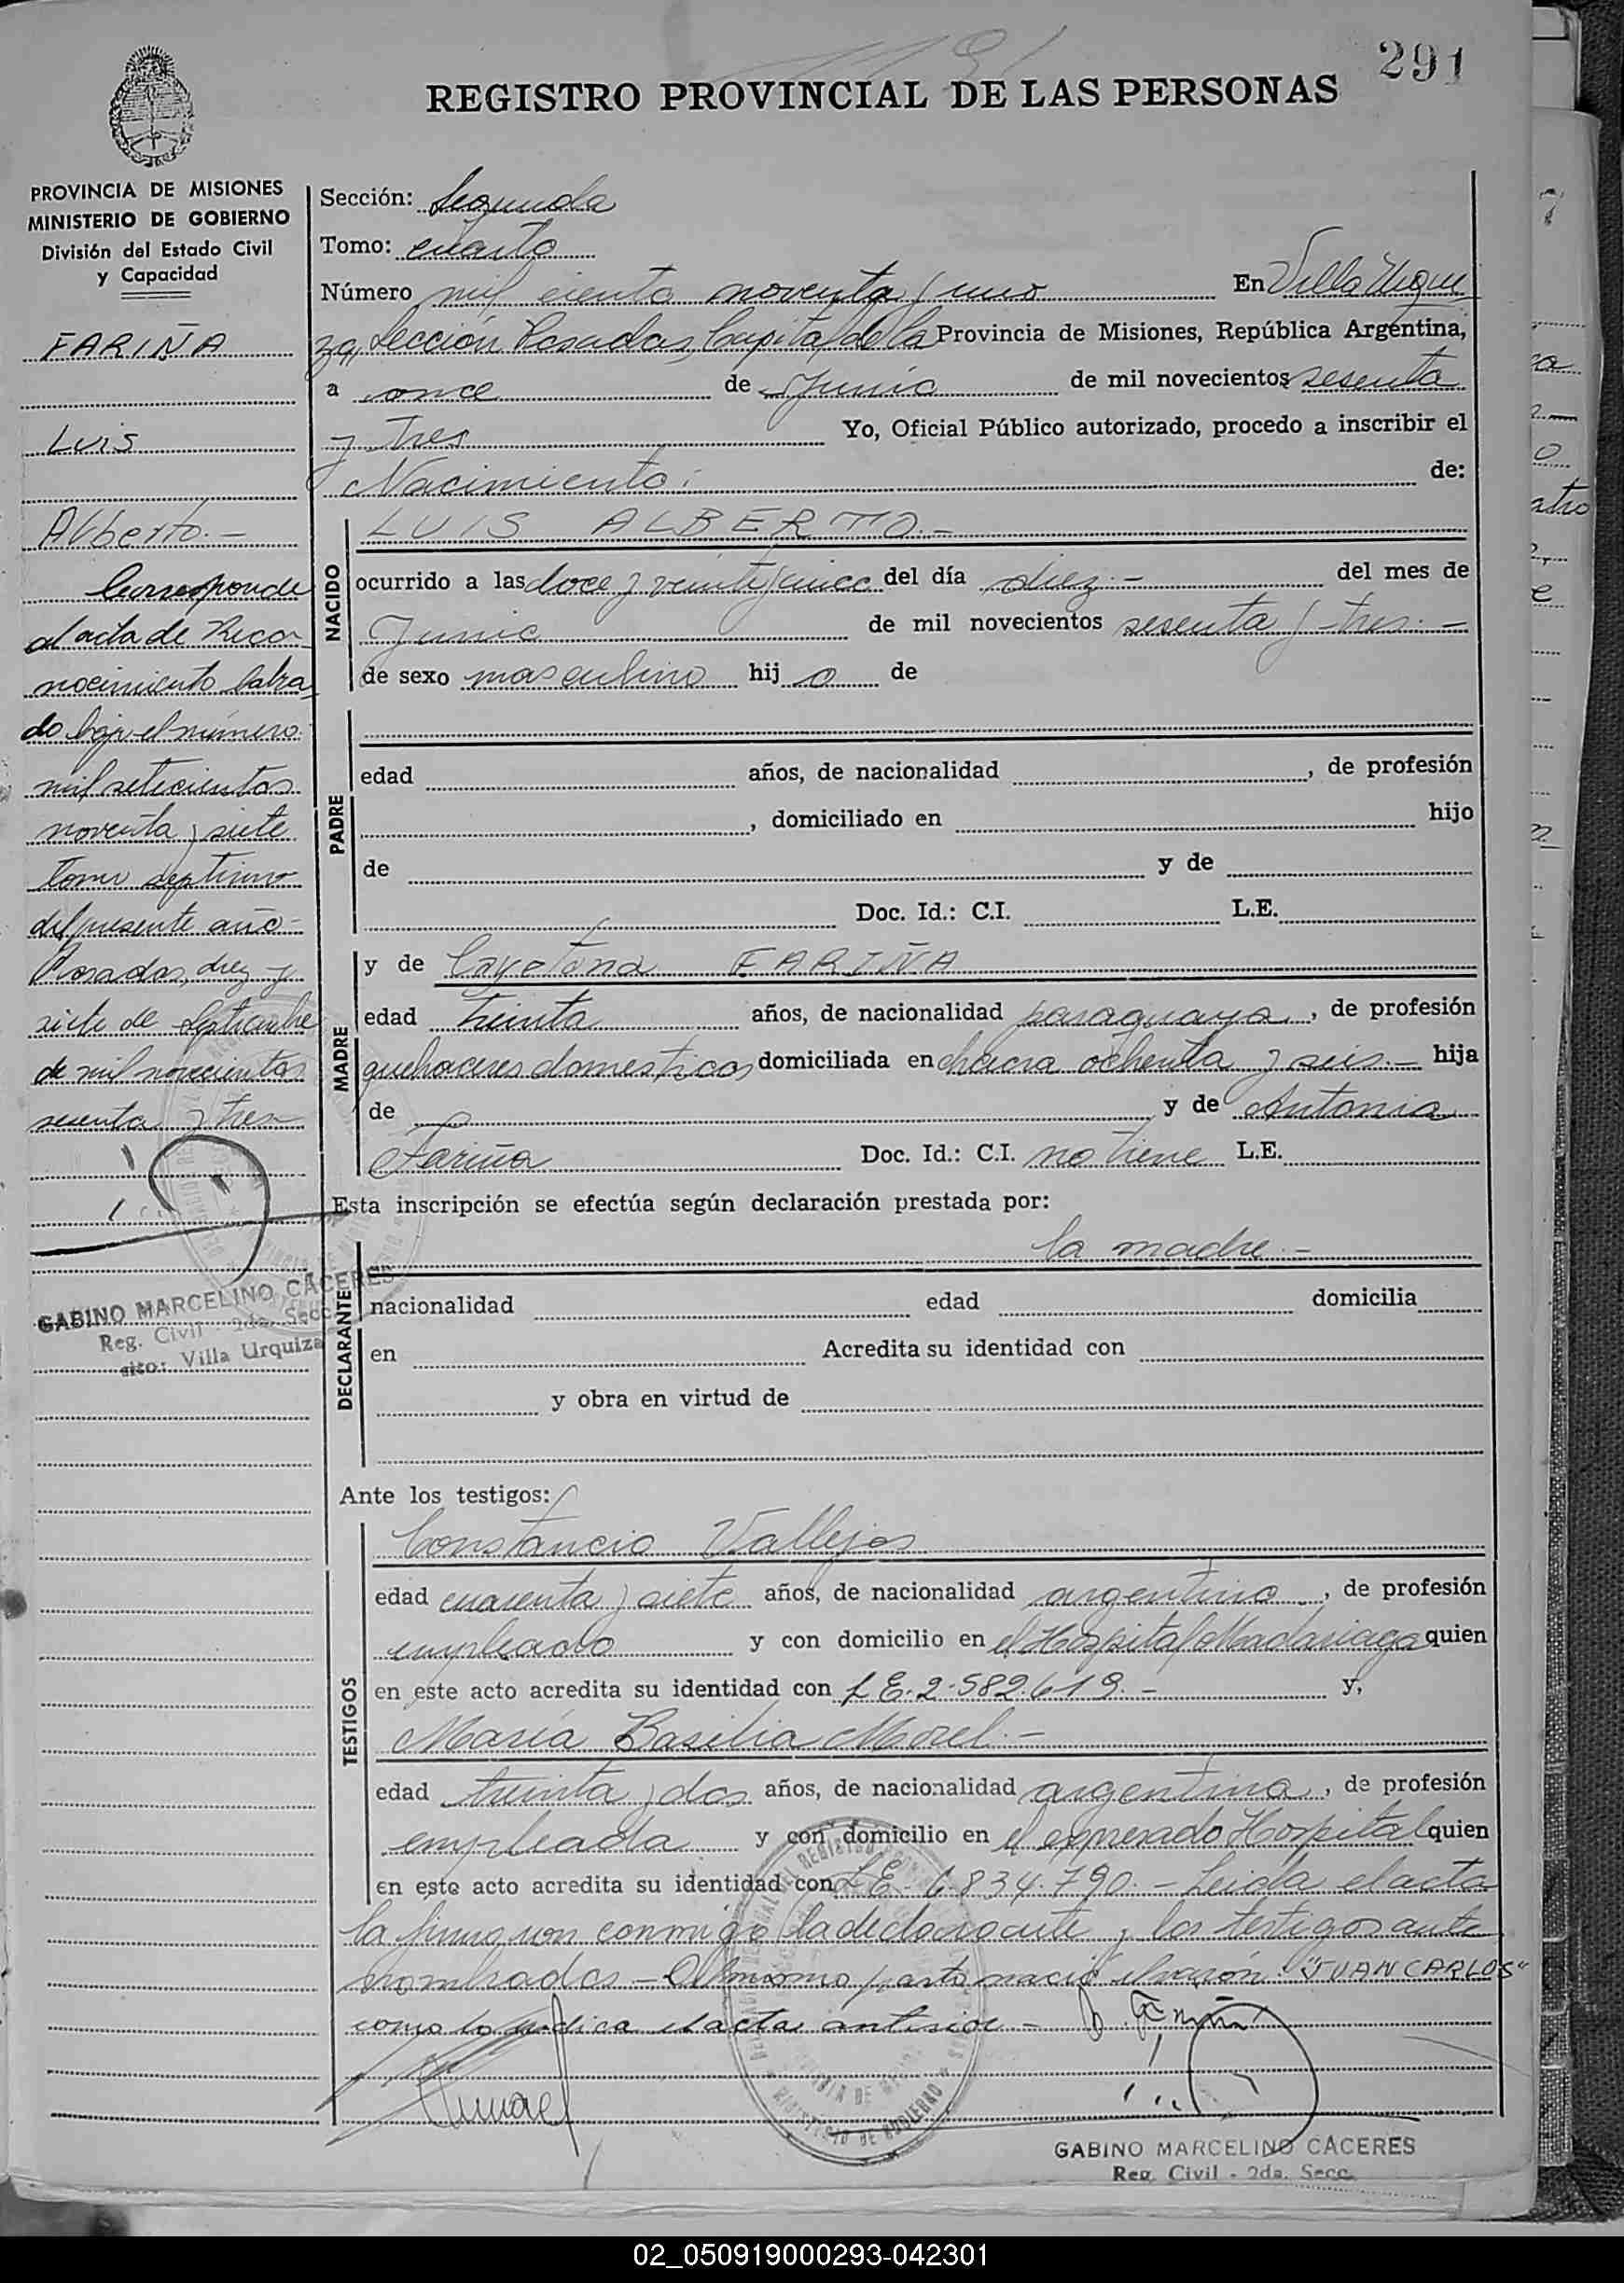 291
REGISTRO PROVINCIAL DE LAS PERSONAS
PROVINCIA DE MISIONES
MINISTERIO DE GOBIERNO
División del Estado Civil
y Capacidad
FARIÑA
Luis
Alberto.-
Corresponde
al acta de Reco
nocimiento labra
do bajo el número
mil setecientos
noventa y siete
tomo septimo
del presente año-
Posadas, diez y
siete de Septiembre
de mil novecientos
sesenta y tres
GABINO MARCELINO CACERES
Reg. Civil - 2da. Secc.
sito: Villa Urquiza
Sección: Segunda
Tomo: cuarto
Número mil ciento noventa y uno En Villa Urqui
za, Sección Posadas, Capital de la Provincia de Misiones, República Argentina,
a once de Junio de mil novecientos sesenta
y tres Yo, Oficial Público autorizado, procedo a inscribir el
Nacimiento: de:
NACIDO
LUIS ALBERTO.-
ocurrido a las doce y veinticinco del día diez.- del mes de
Junio de mil novecientos sesenta y tres.-
de sexo masculino hijo de
PADRE
edad años, de nacionalidad , de profesión
, domiciliado en hijo
de y de
Doc. Id.: C.I. L.E.
MADRE
y de Cayetana FARIÑA
edad treinta años, de nacionalidad paraguaya, de profesión
quehaceres domesticos domiciliada en chacra ochenta y seis.- hija
de y de Antonia
Fariña Doc. Id.: C.I. no tiene L.E.
Esta inscripción se efectúa según declaración prestada por:
la madre.-
DECLARANTE
nacionalidad edad domicilia
en Acredita su identidad con
y obra en virtud de
Ante los testigos:
TESTIGOS
Constancio Vallejos
edad cuarenta y siete años, de nacionalidad argentino, de profesión
empleado y con domicilio en el Hospital Madariaga quien
en este acto acredita su identidad con L.E. 2.582.619.- y,
María Basilia Morel.-
edad treinta y dos años, de nacionalidad argentina, de profesión
empleada y con domicilio en el expresado Hospital quien
en este acto acredita su identidad con L.E. 6.834.790.- Leida el acta
la firmaron conmigo la declarante y los testigos ante
nombrados - Del mismo parto nació el varón "JUAN CARLOS"
como lo indica el acta anterior -
GABINO MARCELINO CACERES
Reg. Civil - 2da. Secc.
02_050919000293-042301